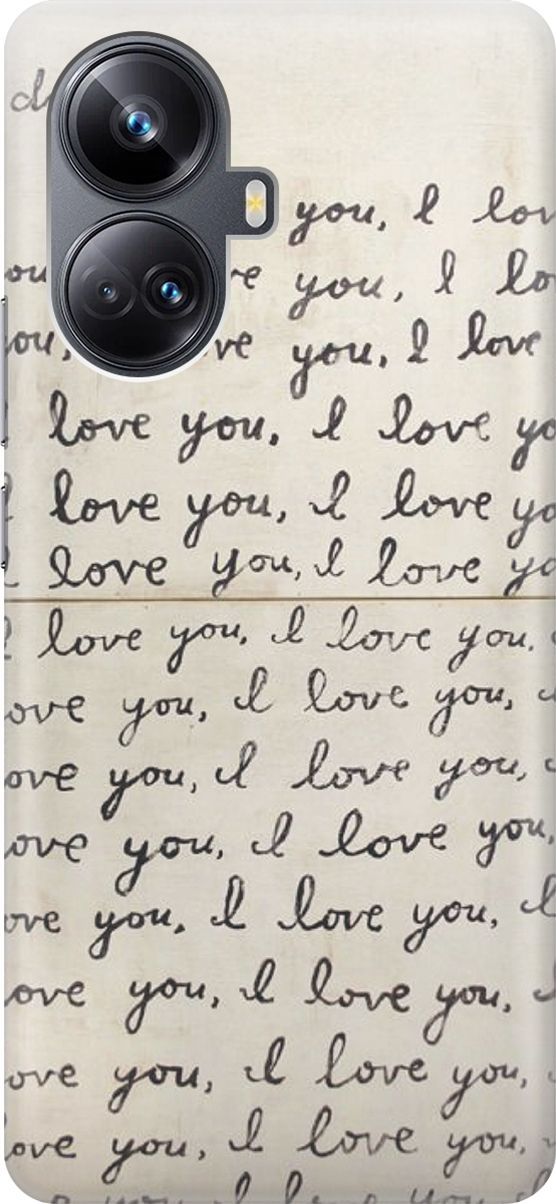 you, I lov
ve you, I lo
you, ve you, I love
love you, I love yo
I love you, I love yo
I love you, I love yo
I love you, I love you,
ove you, I love you,
ove you, I love you,
ove you, I love you,
ove you, I love you, I
ove you, I love you, I
ove you, I love you,
ove you, I love you,